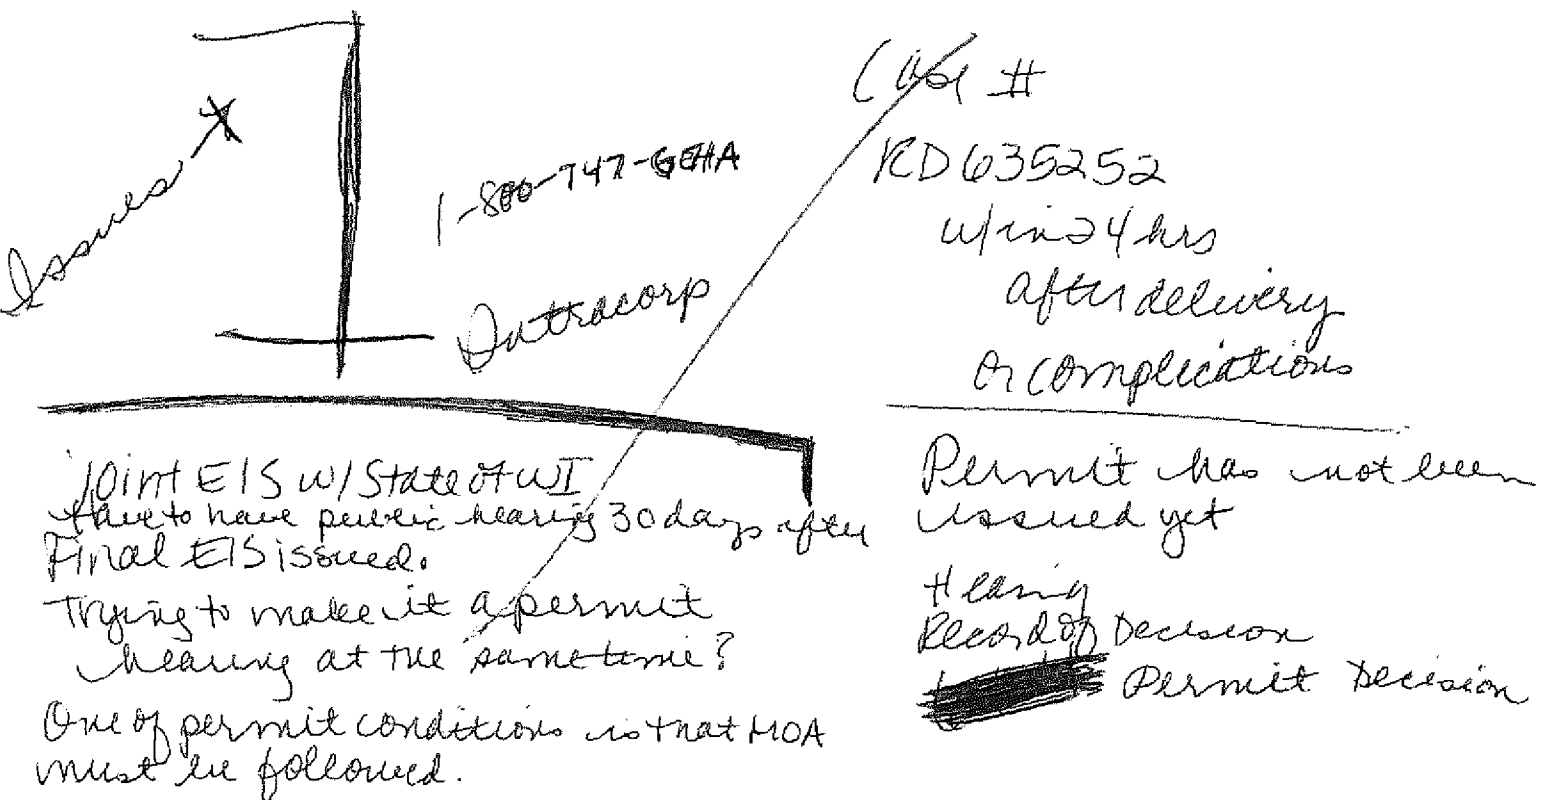 Issues
1-800-747-GEHA
Intracorp
Case #
RD635252
w/in 24 hrs
after delivery
or complications
Joint EIS w/ State of WI
Have to have public hearing 30 days after
Final EIS issued.
Trying to make it a permit
hearing at the same time?
One of permit conditions is that MOA
must be followed.
Permit has not been
issued yet
Hearing
Record of Decision
Permit Decision